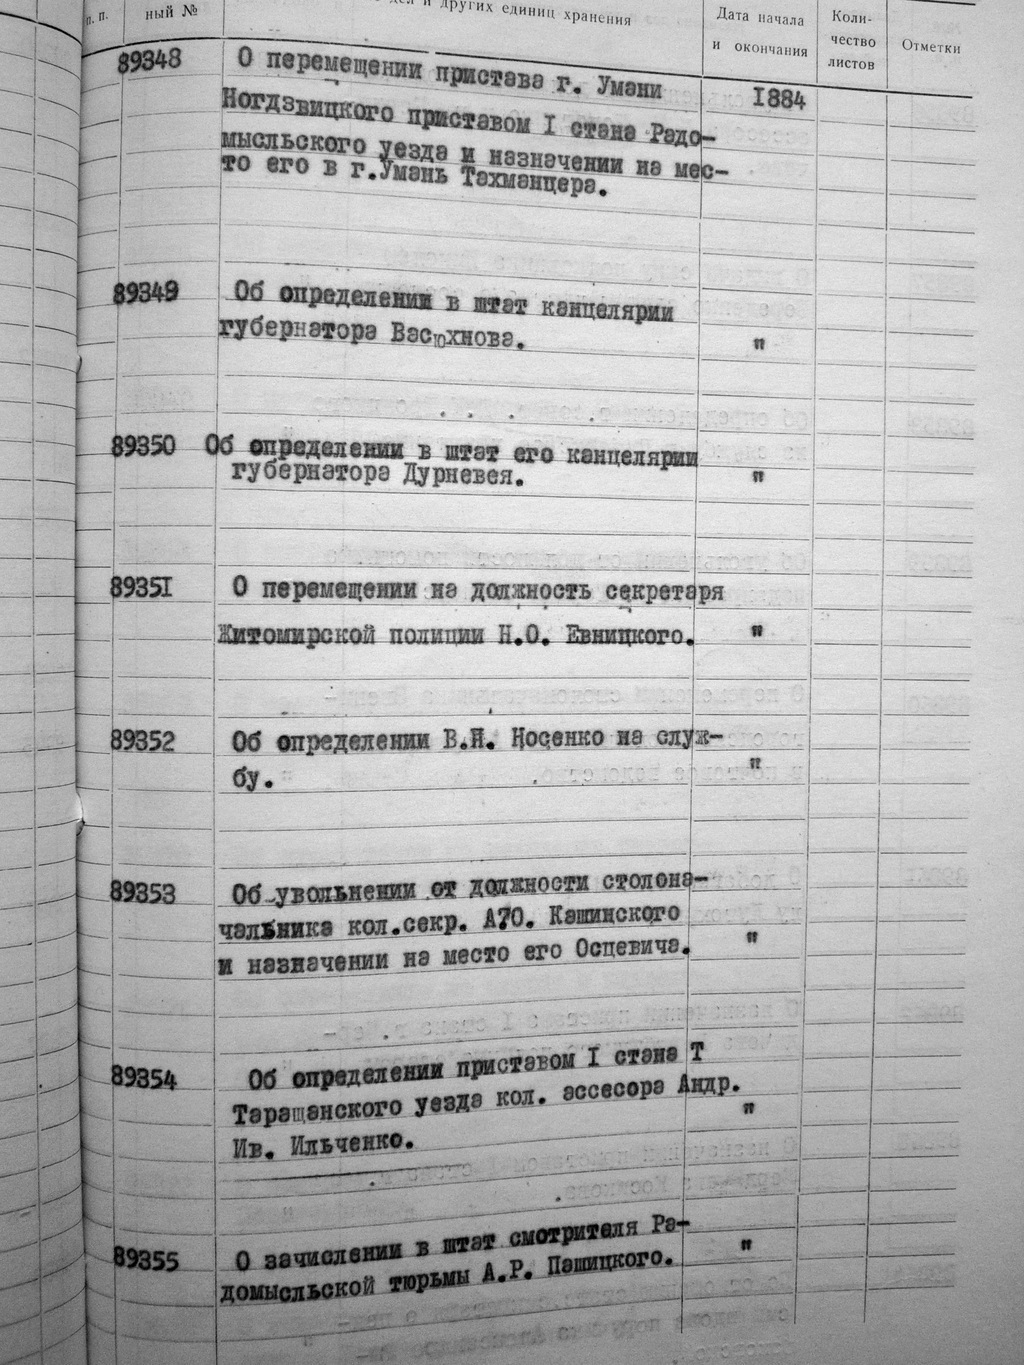 п. п.
ный №
дел и других единиц хранения
Дата начала
и окончания
Коли-
чество
листов
Отметки
89348 О перемещении пристава г. Умани 1884
Ногдзвицкого приставом I стана Радо-
мысльского уезда и назначении на мес-
то его в г.Умань Тахманцера.
89349 Об определении в штат канцелярии
губернатора Васюхнова. "
89350 Об определении в штат его канцелярии
губернатора Дурневея. "
89351 О перемещении на должность секретаря
Житомирской полиции Н.О. Евницкого. "
89352 Об определении В.Я. Носенко на служ-
бу. "
89353 Об увольнении от должности столона-
чальника кол.секр. А?О. Кашинского
и назначении на место его Осцевича. "
89354 Об определении приставом I стана Т
Таращанского уезда кол. ассесора Андр.
Ив. Ильченко. "
89355 О зачислении в штат смотрителя Ра-
домысльской тюрьмы А.Р. Пашицкого. "